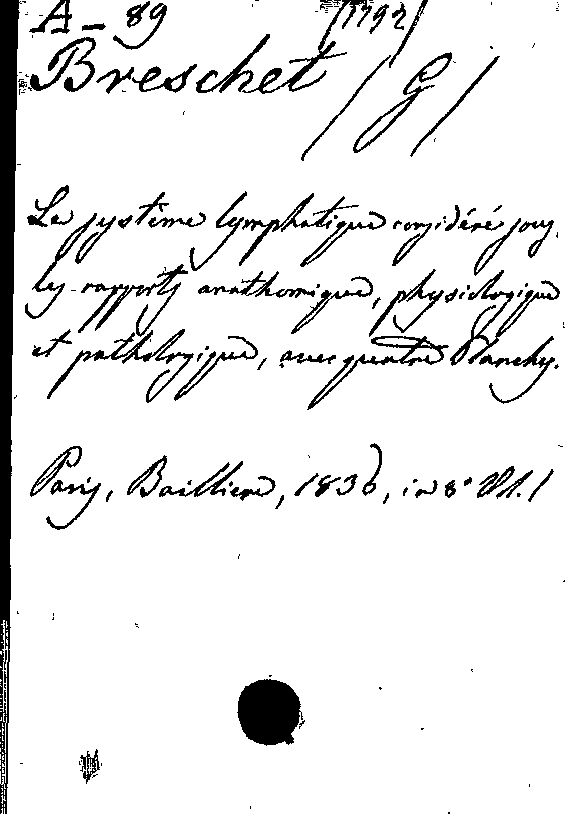 A – 89 (1792)
Breschet (G)
Le système lymphatique considéré sous
les rapports anathomique, physiologique
et pathologique, avec quatre Planches.
Paris, Bailliere, 1836, in 8° Vol. 1